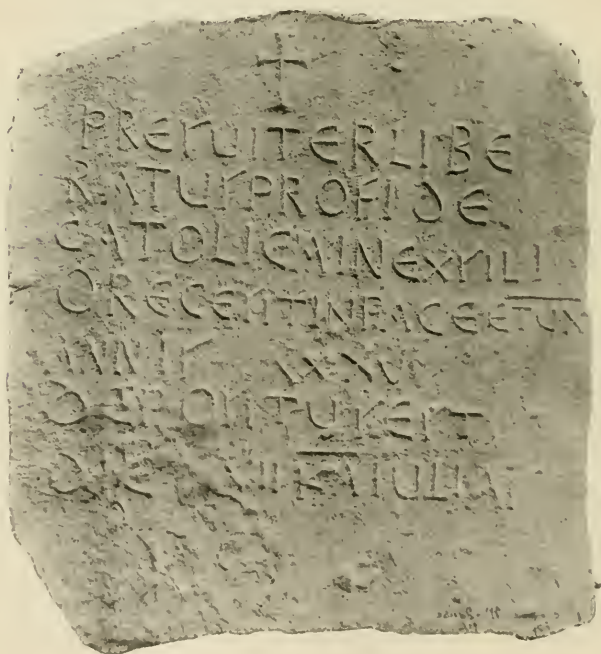 PRESUITERLIBE
RATUSPROFIDE
CATOLICAINEXILI
ORECESITINPACEETUX
ANNIS
DEPOSITUSEST